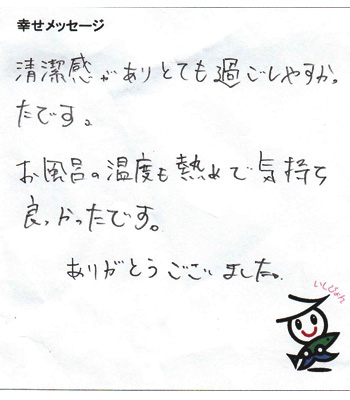 幸せメッセージ
清潔感がありとても過ごしやすかっ
たです。
お風呂の温度も熱めで気持ち
良かったです。
ありがとうございました。
いしじょん